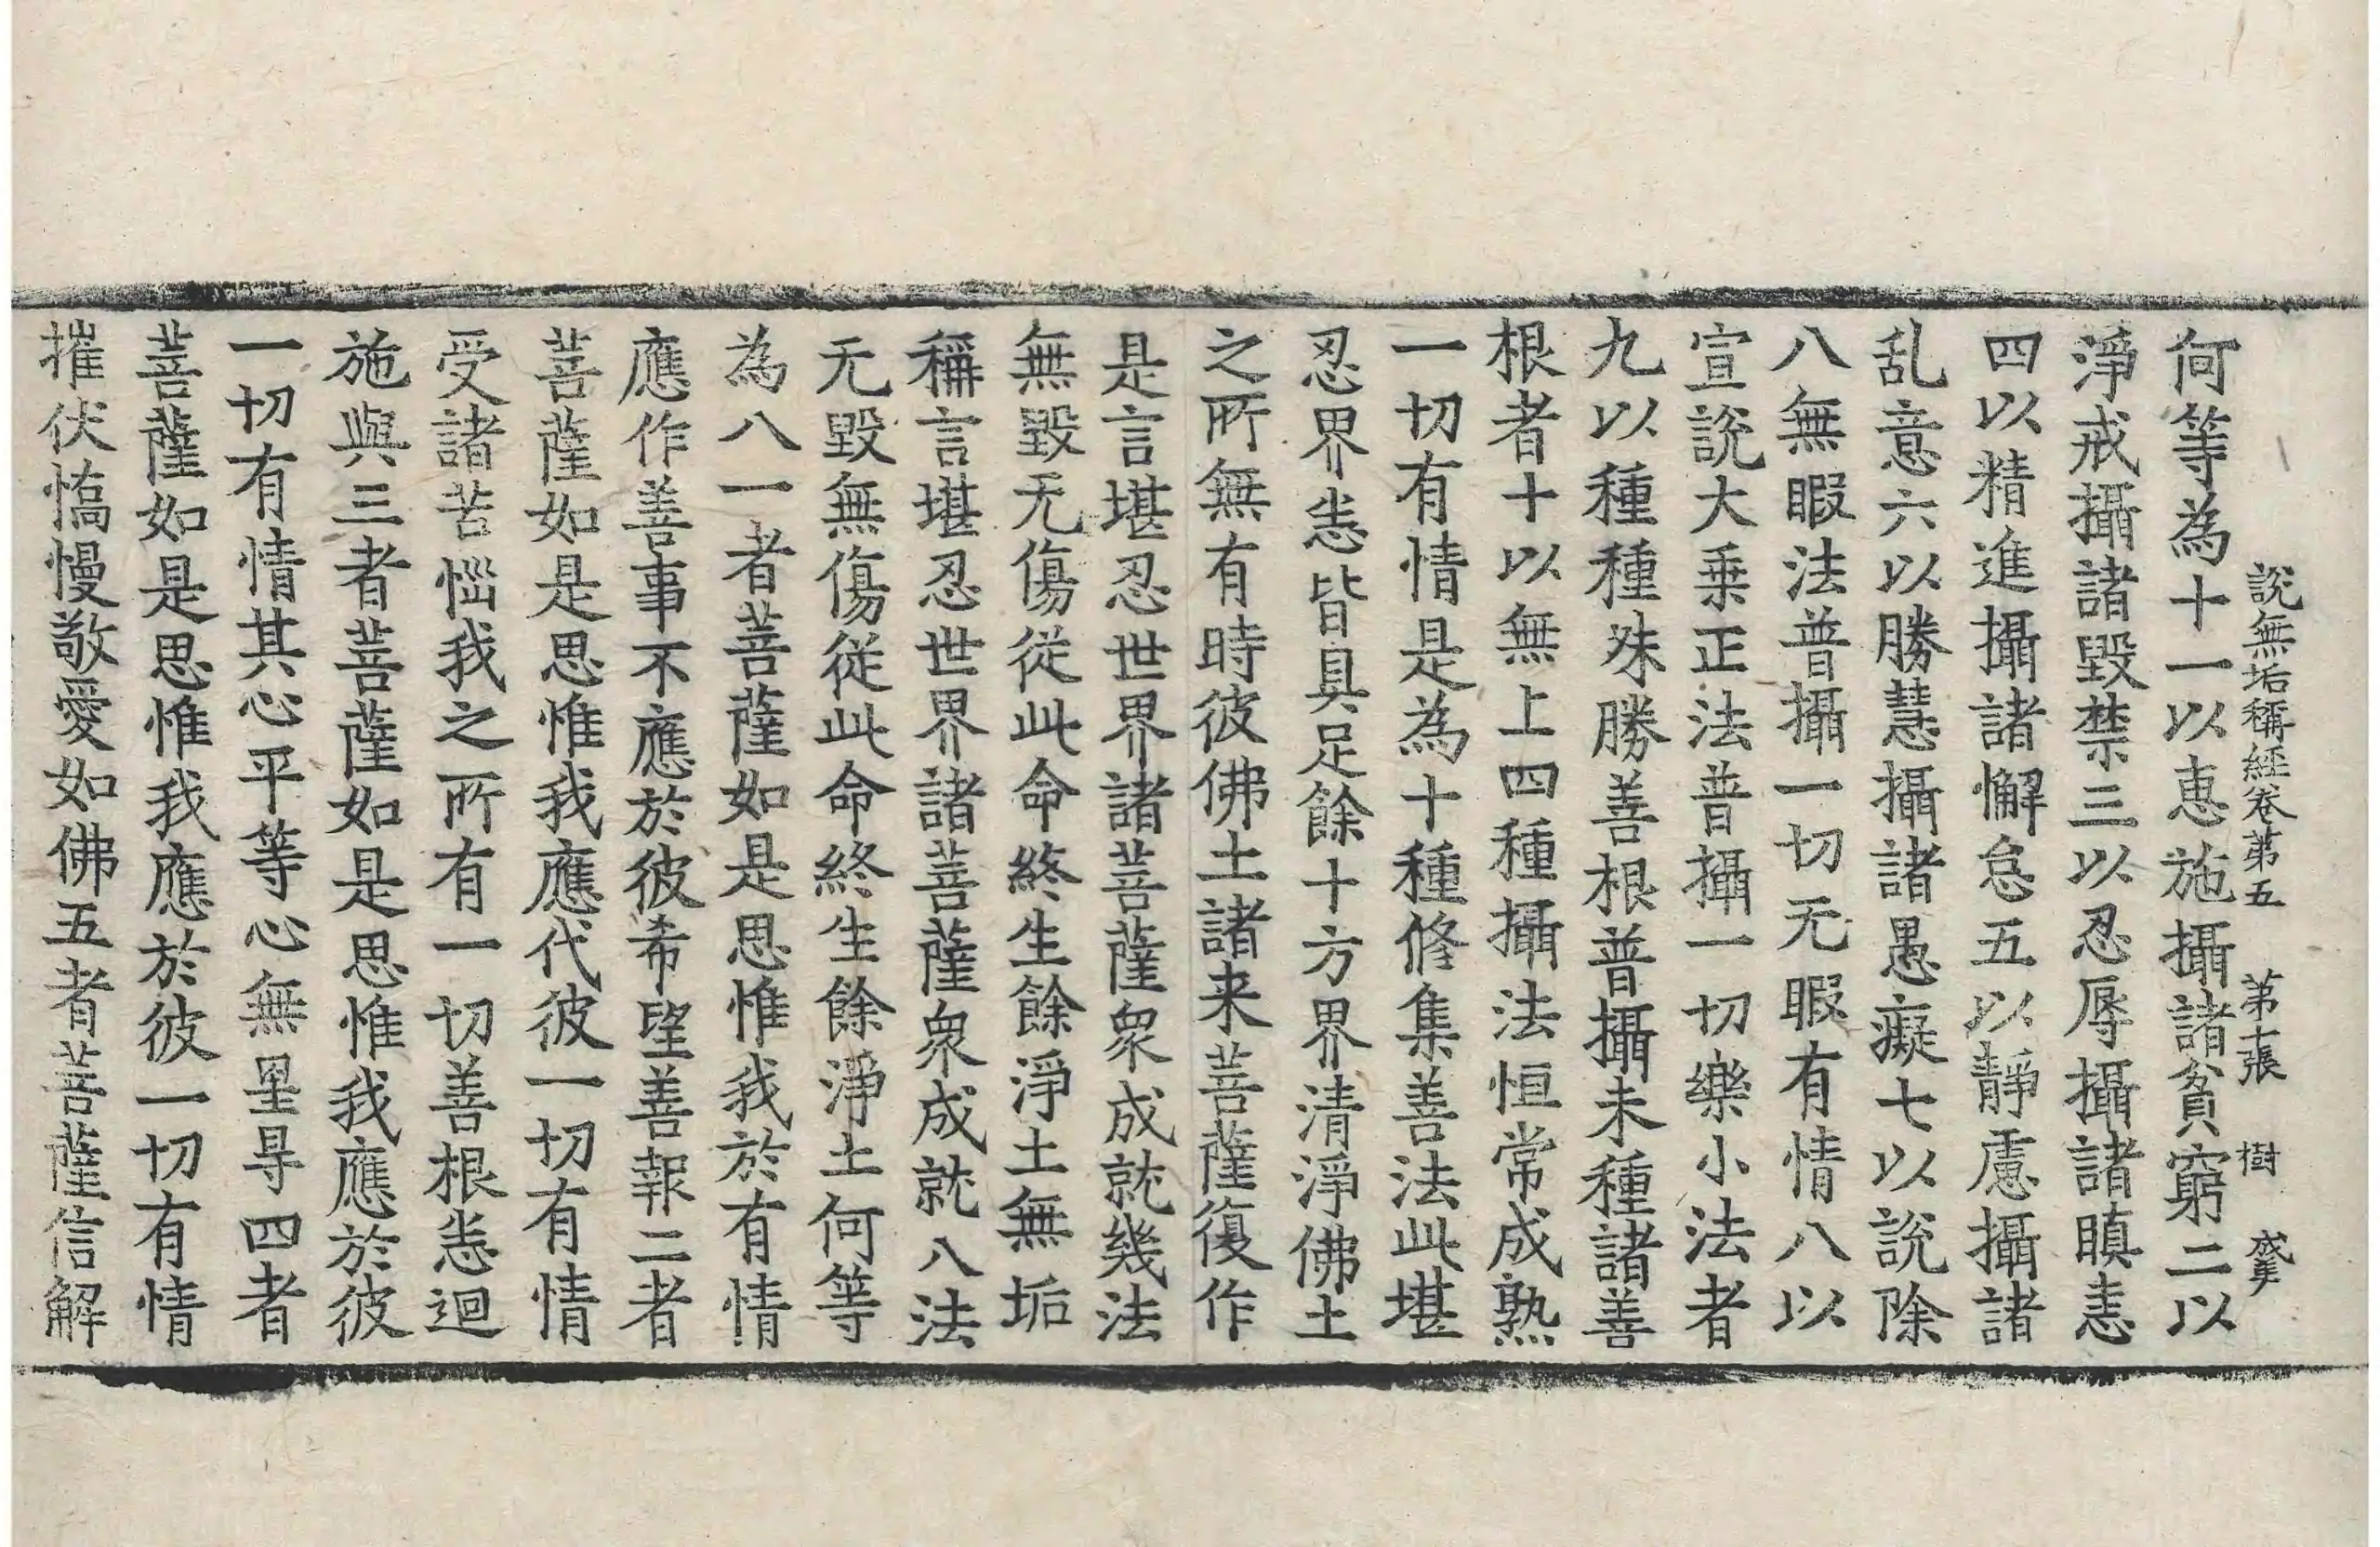 說無垢稱經卷第五 第十張 樹
何等為十一以惠施攝諸貧窮二以
淨戒攝諸毀禁三以忍辱攝諸瞋恚
四以精進攝諸懈怠五以靜慮攝諸
乱意六以勝慧攝諸愚癡七以說除
八無暇法普攝一切无暇有情八以
宣說大乗正法普攝一切樂小法者
九以種種殊勝善根普攝未種諸善
根者十以無上四種攝法恒常成熟
一切有情是為十種修集善法此堪
忍界悉皆具足餘十方界清淨佛土
之所無有時彼佛土諸来菩薩復作
是言堪忍世界諸菩薩衆成就幾法
無毀无傷從此命終生餘淨土無垢
稱言堪忍世界諸菩薩衆成就八法
无毀無傷從此命終生餘淨土何等
為八一者菩薩如是思惟我於有情
應作善事不應於彼希望善報二者
菩薩如是思惟我應代彼一切有情
受諸苦惱我之所有一切善根悉迴
施與三者菩薩如是思惟我應於彼
一切有情其心平等心無罣㝵四者
菩薩如是思惟我應於彼一切有情
摧伏憍慢敬愛如佛五者菩薩信解